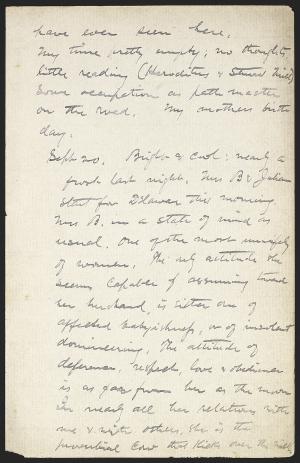 have ever seen here.
My time pretty empty; no thoughts,
little reading (Herodotus & Stuart Mill)
Some occupation as path master
on the road. My mothers birth
day.
Sept 20. Bright & cool; nearly a
frost last night. Mrs B & Julian
start for Delawar this morning.
Mrs B. in a state of mind as
usual. One of the most unruly
of women. The only attitude she
seems capable of assuming toward
her husband, is either one of
affected babyishness, or of insolent
domineering. The attitude of
deference, respect, love & obedience
is as far from her as the moon
In nearly all her relations with
me & with others, she is the
proverbial Cow that kicks over the milk